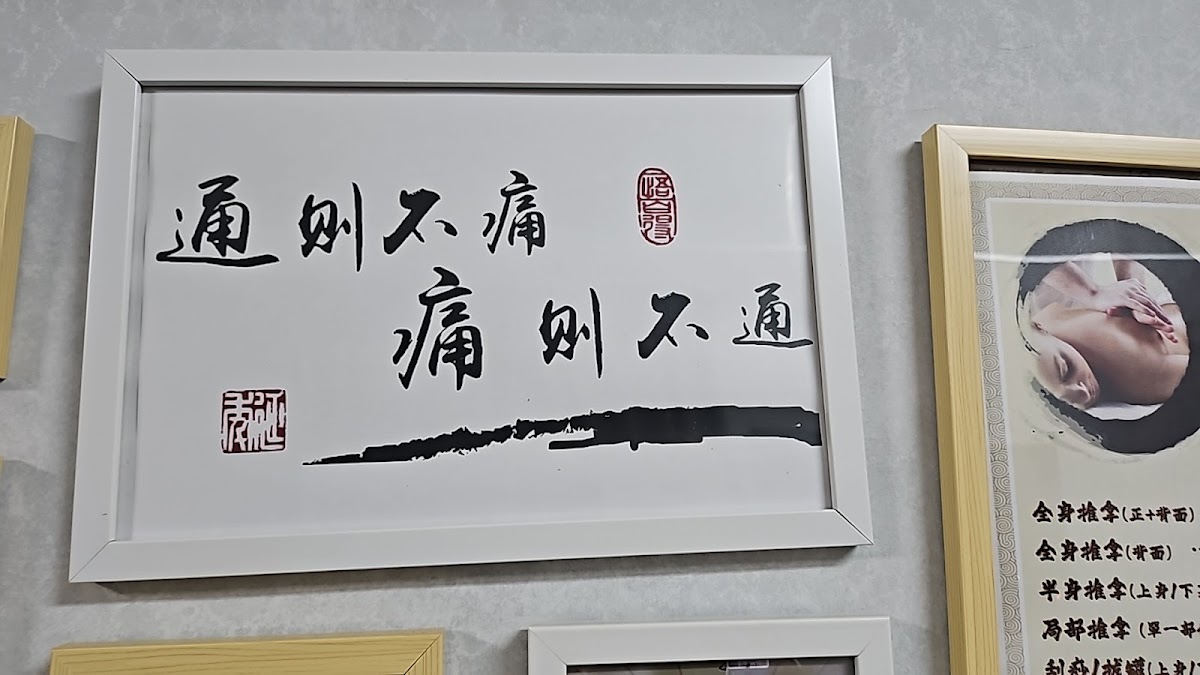 通則不痛
痛則不通
全身推拿(正+背面)
全身推拿(背面)
半身推拿(上身/下
局部推拿(單一部
刮痧/拔罐(上身/